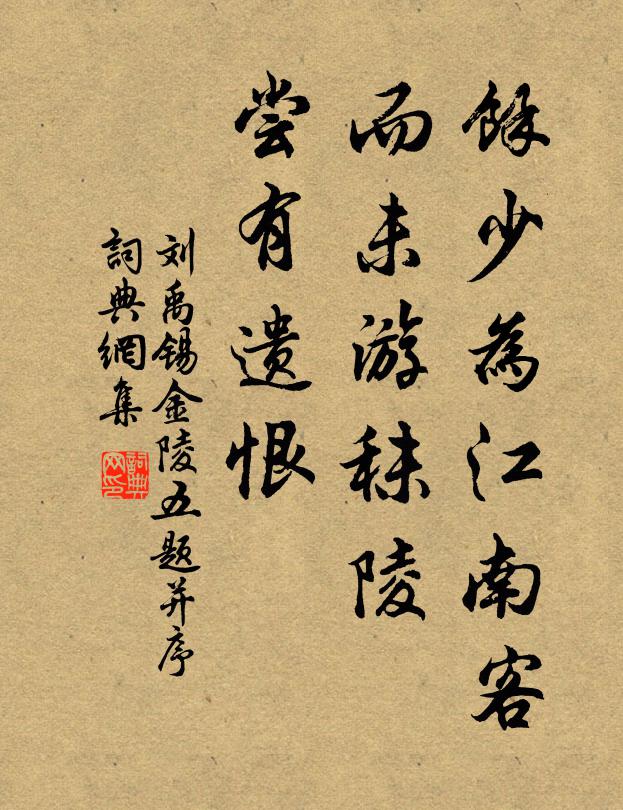 餘少為江南客
而未游秣陵
尝有遗恨
刘禹锡金陵五题并序
詞典網集
詞典
网印